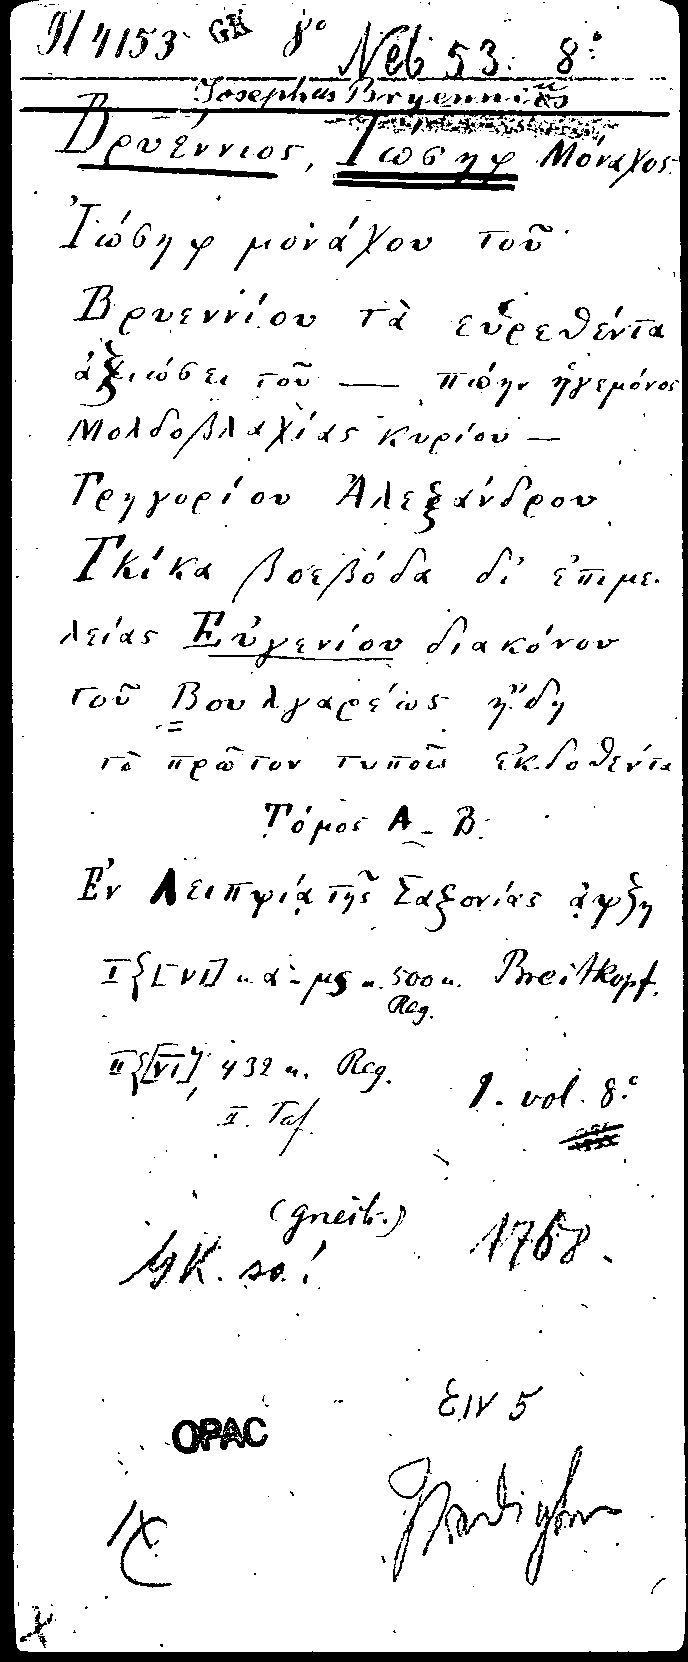 4153 GK 8° Neb 53. 8°
Josephus Bryennius
Βρυέννιος, Ἰώσηφ Μόναχος.
Ἰώσηφ μονάχου τοῦ
Βρυεννίου τὰ εὑρεθέντα
ἀξιώσει τοῦ — πώην ἡγεμόνος
Μολδοβλαχίας κυρίου —
Γρηγορίου Ἀλεξάνδρου
Γκίκα βοεβόδα δι' ἐπιμε-
λείας Εὐγενίου διακόνου
τοῦ Βουλγαρέως ἤδη
τὸ πρῶτον τυποῖς ἐκδοθέντα
Τόμος Α - Β.
Ἐν Λειπψίᾳ τῆς Σαξονίας ἀψξη
I {[-VI] u. α - μς u. 500 u. Breitkopf.
Reg.
II {[VI], 432 u. Reg.
II. Taf.
1. vol. 8°
(gneib.)
GK. so! 1768.
OPAC